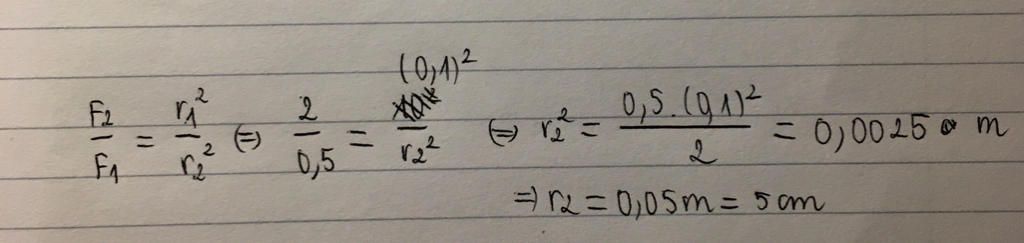 F2/F1 = r1²/r2² ⇔ 2/0,5 = (0,1)²/r2² ⇔ r2² = 0,5.(0,1)²/2 = 0,0025 m
⇒ r2 = 0,05m = 5cm